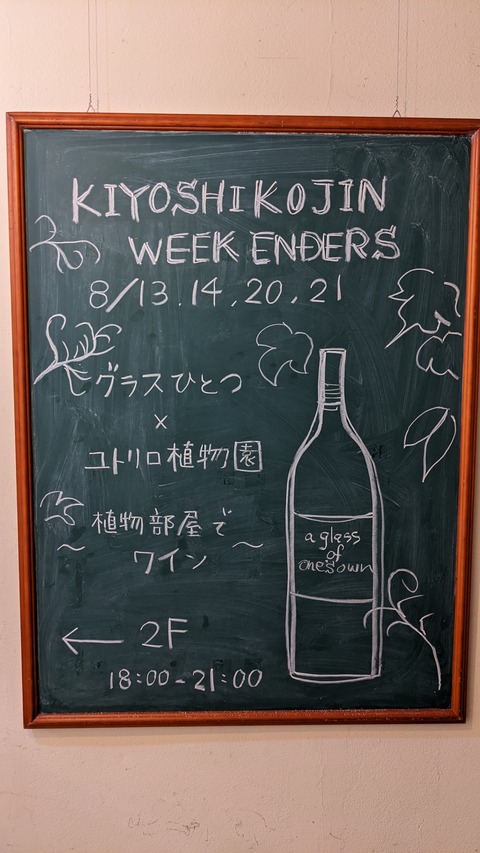 KIYOSHI KOJIN
WEEK ENDERS
8/13.14.20.21
グラスひとつ
×
ユトリロ植物園
植物部屋で
～ワイン～
a glass
of
one's own
← 2F
18:00-21:00